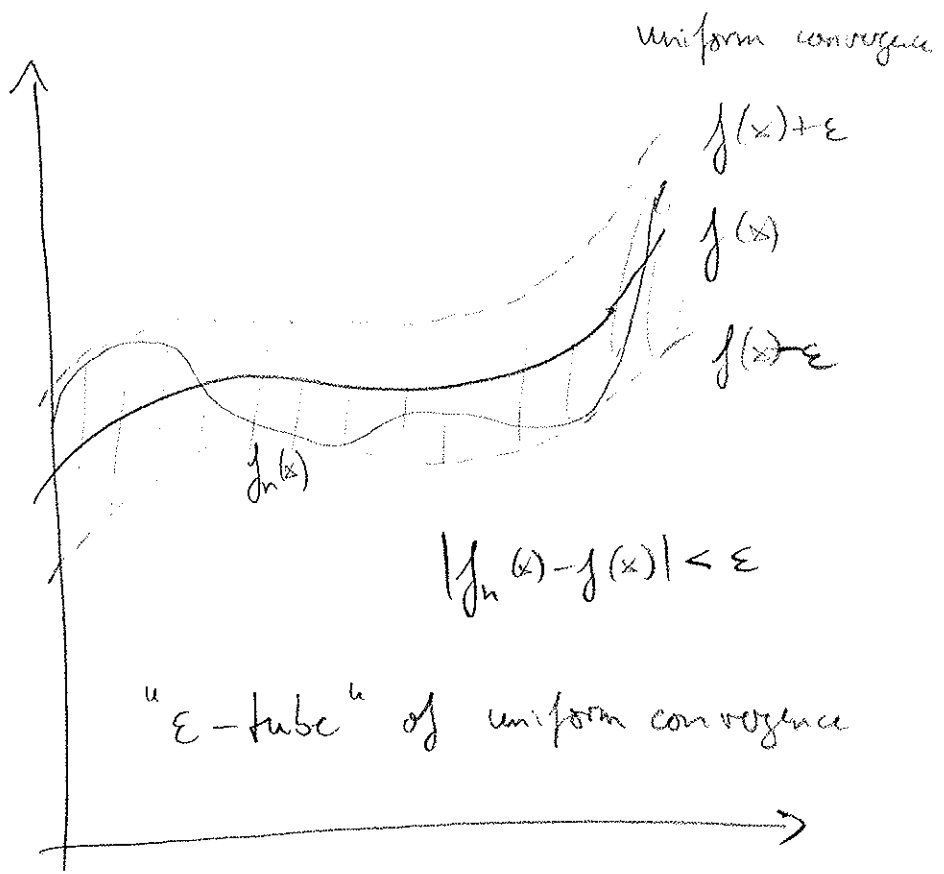 uniform convergence
f(x)+ε
f(x)
f(x)-ε
fₙ(x)
|fₙ(x)-f(x)| < ε
"ε-tube" of uniform convergence